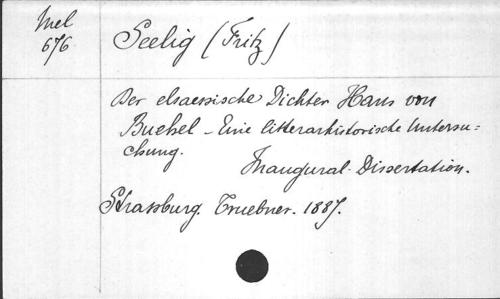 Mel
676
Seelig (Fritz)
Der elsaessische Dichter Hans von
Buehel - Eine litterarhistorische Untersu=
chung.
Inaugural-Dissertation.
Strassburg. Truebner. 1887.